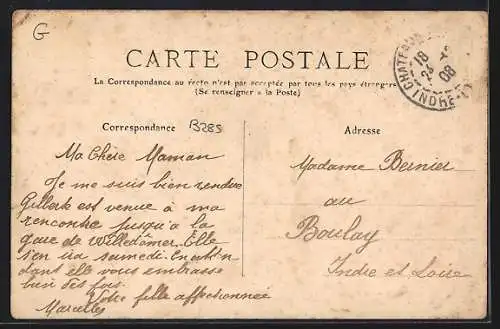 G
CARTE POSTALE
La Correspondance au recto n'est pas acceptée par tous les pays étrangers
(Se renseigner a la Poste)
CHATEAU
18
08
INDRE-ET
Correspondance
B285
Adresse
Ma Chère Maman
Je me suis bien rendue
Gilberte est venue à ma
rencontre jusqu'a la
gare de Villedômer. Elle
s'en ira samedi
dant elle vous embrasse
bien des fois.
Votre fille affectionnée
Marcelle
Madame Bernier
au
Boulay
Indre et Loire